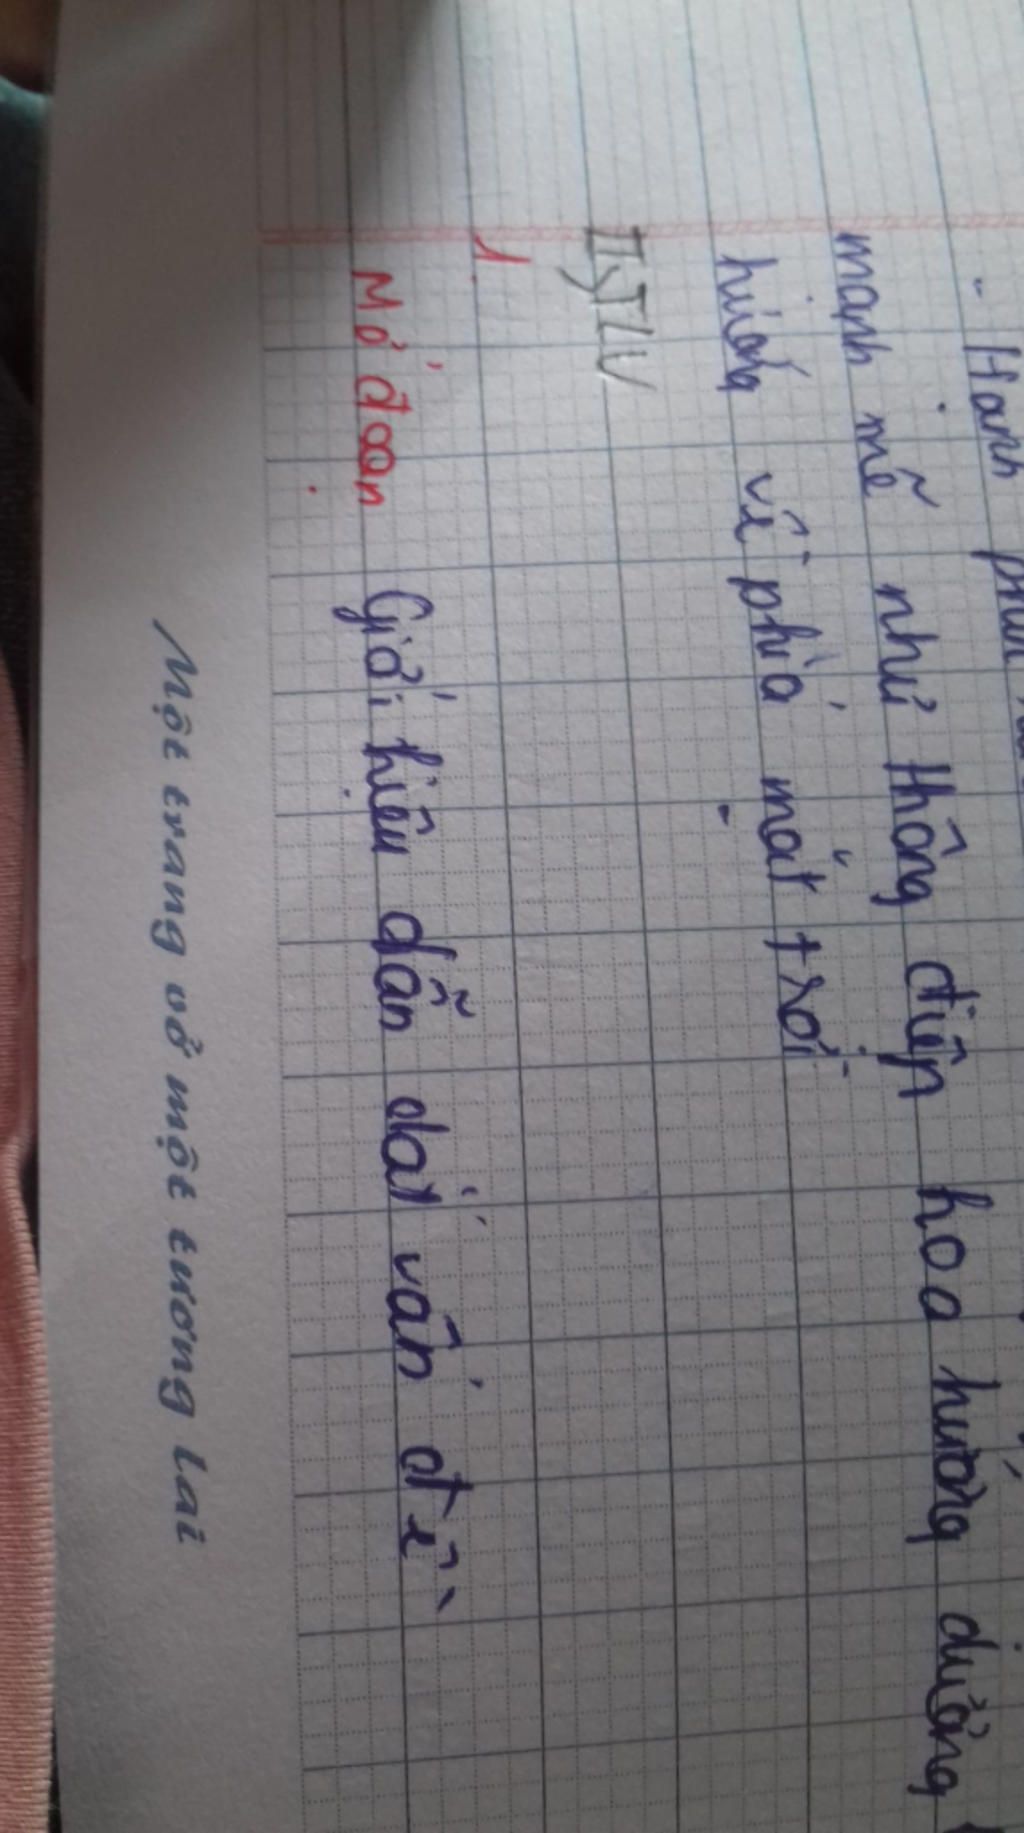 - Hạnh phúc
mạnh mẽ như thông điệp hoa hướng dương
hướng về phía mặt trời
II, TLV
1.
Mở đoạn Giới thiệu dẫn dắt vấn đề
Một trang vở một tương lai